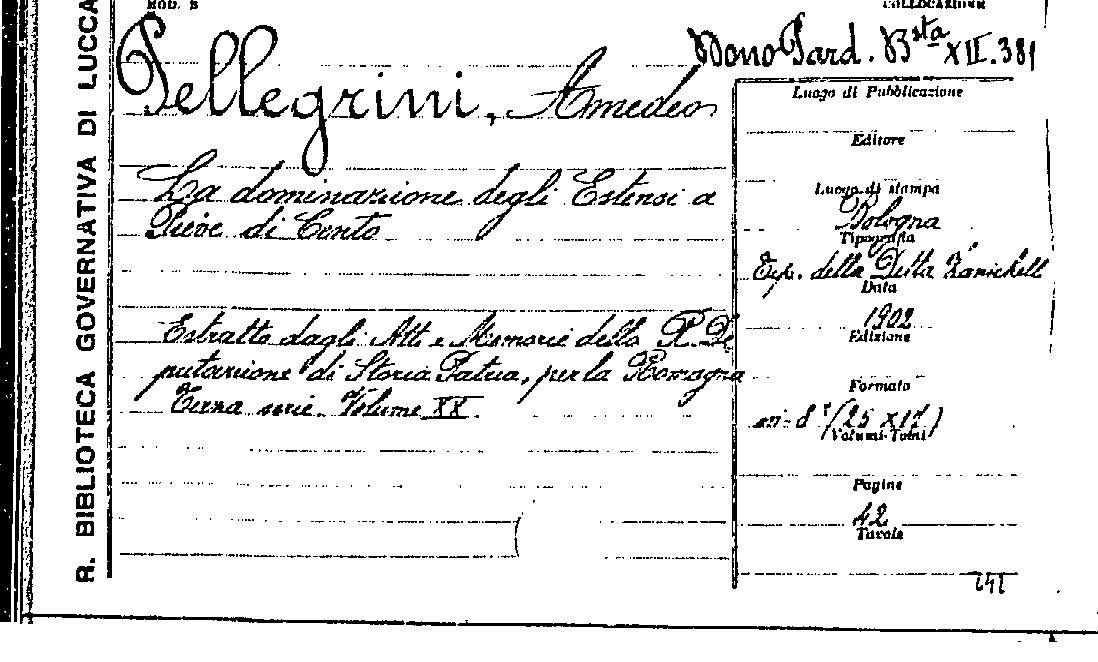 R. BIBLIOTECA GOVERNATIVA DI LUCCA
MOD. B
COLLOCAZIONE
Pellegrini, Amedeo
Bsta XII. 381
La dominazione degli Estensi a
Pieve di Cento
Estratto dagli Atti e Memorie della R. De
putazione di Storia Patria, per la Romagna
Terza serie. Volume XX.
Luogo di Pubblicazione
Editore
Luogo di stampa
Bologna
Tipografia
Tip. della Ditta Zanichelli
Data
1902
Edizione
Formato
in-8° (25 x 17)
Volumi-Tomi
Pagine
42
Tavole